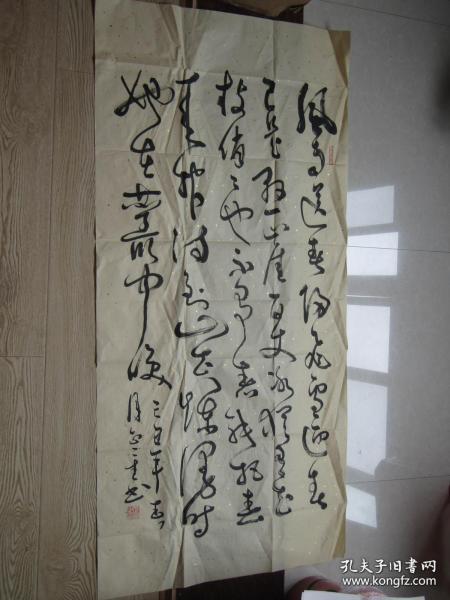 风雨送春归飞雪迎春
到已是悬崖百丈冰犹有花
枝俏俏也不争春只把春
来报待到山花烂漫时
她在丛中笑
孔夫子旧书网
www.kongfz.com